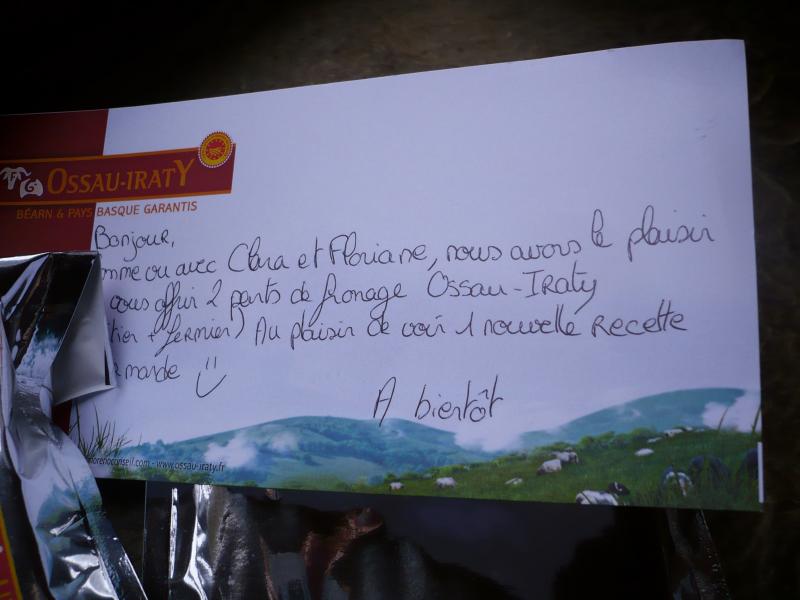 OSSAU-IRATY
BÉARN & PAYS BASQUE GARANTIS
Bonjour,
mme vu avec Clara et Floriane, nous avons le plaisir
vous offrir 2 parts de fromage Ossau-Iraty
tier + fermier) Au plaisir de voir 1 nouvelle recette
mande
A bientôt
morenoconseil.com - www.ossau-iraty.fr